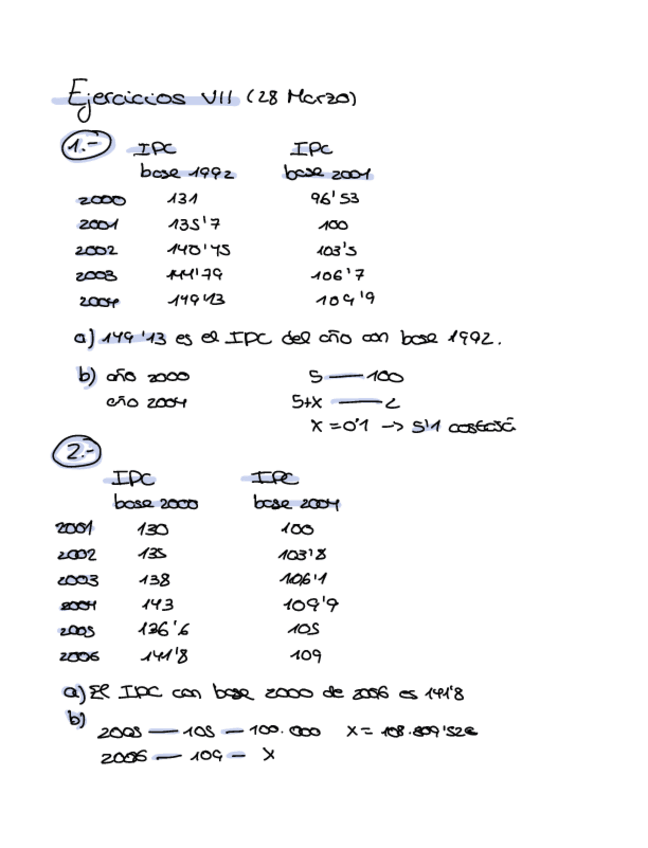 Ejercicios VII (28 Marzo)
1.- IPC IPC
base 1992 base 2001
2000 131 96'53
2001 135'7 100
2002 140'45 103'5
2003 144'79 106'7
2004 149'13 109'9
a) 149'13 es el IPC del año con base 1992.
b) año 2000 5 — 100
año 2004 5+x — 2
x = 0'1 -> 5'1 costará
2.-
IPC IPC
base 2000 base 2004
2001 130 100
2002 135 103'8
2003 138 106'1
2004 143 109'9
2005 136'6 105
2006 141'8 109
a) El IPC con base 2000 de 2006 es 141'8
b)
2005 — 105 — 100.000 x = 108.809'52€
2006 — 109 — x